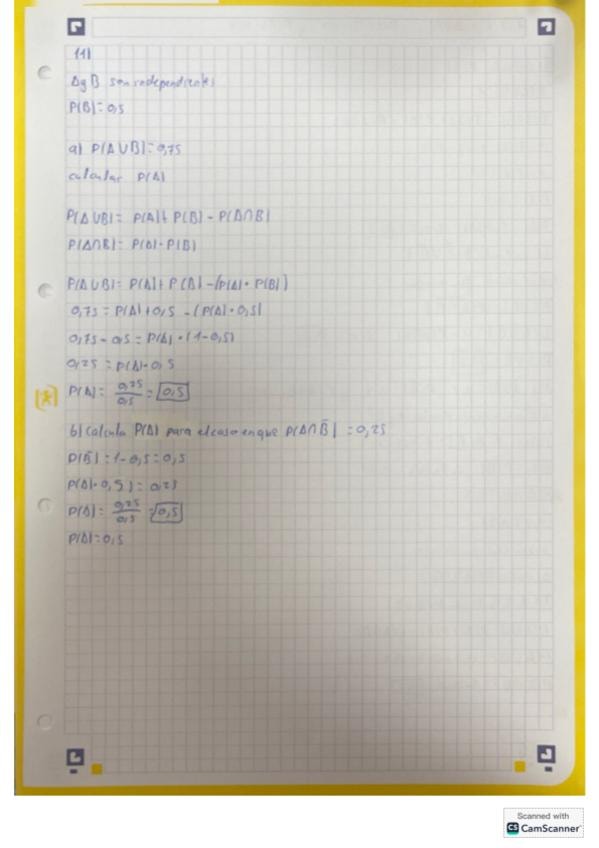 11)
A y B son independientes
P(B) = 0,5
a) P(A ∪ B) = 0,75
calcular P(A)
P(A ∪ B) = P(A) + P(B) - P(A ∩ B)
P(A ∩ B) = P(A) · P(B)
P(A ∪ B) = P(A) + P(B) - (P(A) · P(B))
0,75 = P(A) + 0,5 - (P(A) · 0,5)
0,75 - 0,5 = P(A) · (1 - 0,5)
0,25 = P(A) · 0,5
P(A) = 0,25/0,5 = 0,5
b) Calcula P(A) para el caso en que P(A ∩ B̄) = 0,25
P(B̄) = 1 - 0,5 = 0,5
P(A) · 0,5) = 0,25
P(A) = 0,25/0,5 = 0,5
P(A) = 0,5
Scanned with
CS CamScanner